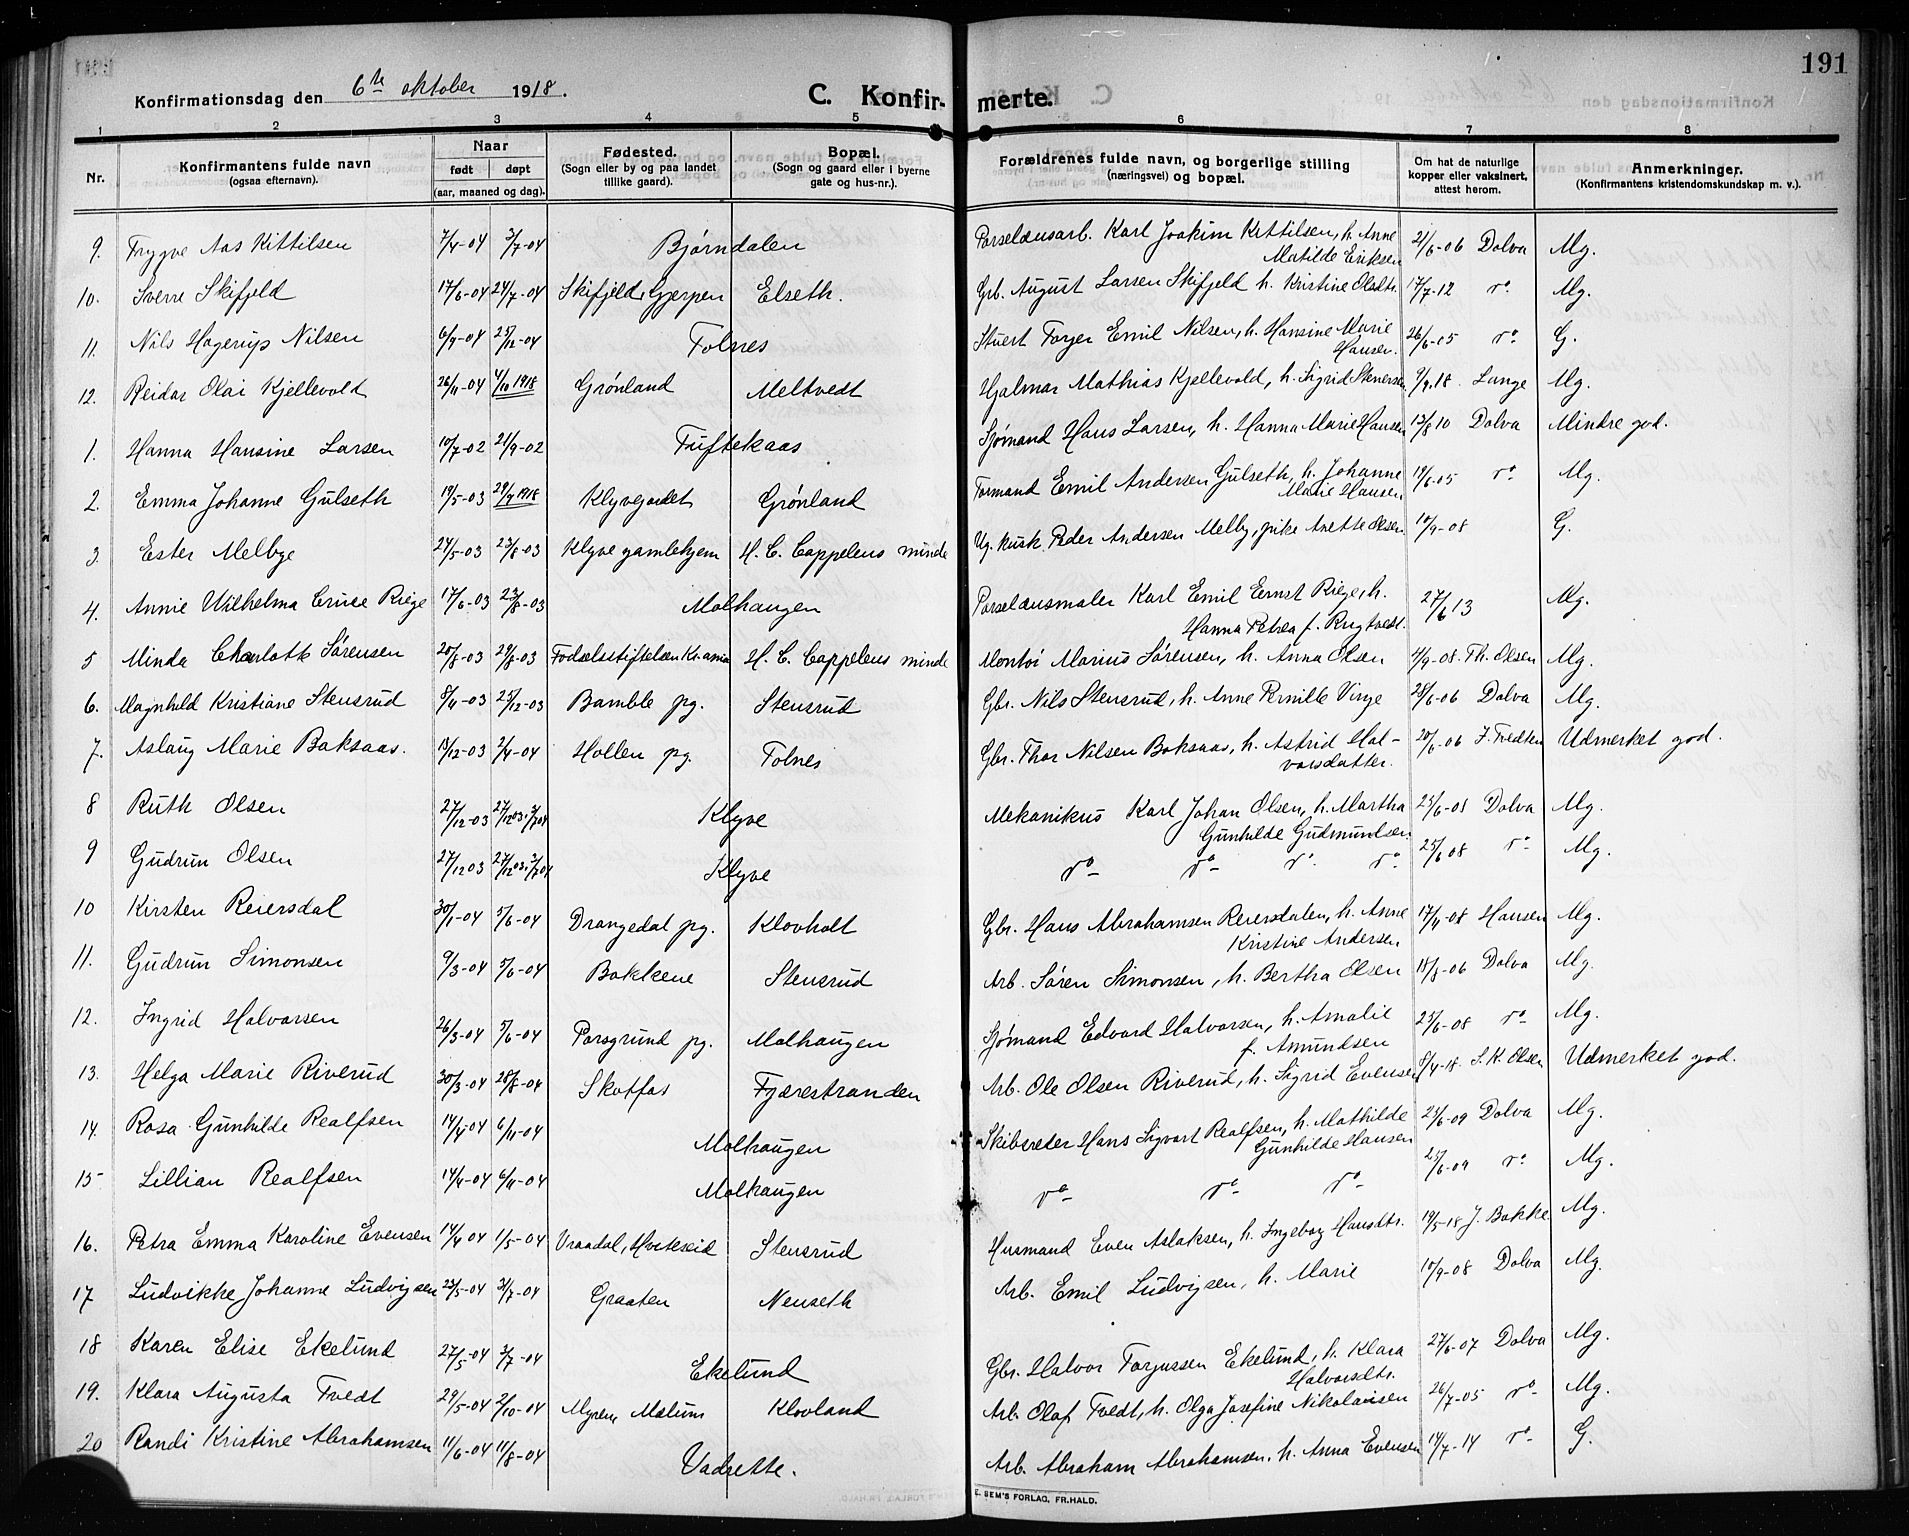 191
Konfirmationsdag den 6te oktober 1918.
C. Konfirmerte.
1 2 3 4 5 6 7 8
Nr. Konfirmantens fulde navn (ogsaa efternavn). Naar født døpt (aar, maaned og dag). Fødested. (Sogn eller by og paa landet tillike gaard). Bopæl. (Sogn og gaard eller i byerne gate og hus-nr.). Forældrenes fulde navn, og borgerlige stilling (næringsvei) og bopæl. Om hat de naturlige kopper eller vaksinert, attest herom. Anmerkninger. (Konfirmantens kristendomskundskap m. v.).
9. Trygve Aas Kittilsen 7/4-04 3/7-04 Bjørndalen Porselænsarb. Karl Joakim Kittilsen, h. Anne Matilde Eriksen 21/6-06 Dolva Mg.
10. Sverre Skifjeld 17/6-04 24/7-04 Skifjeld, Gjerpen Elseth. Grb. August Larsen Skifjeld h. Kristine Olsdtr. 17/7-12 do. Mg.
11. Nils Hagerup Nilsen 6/9-04 25/12-04 Tolnes Stuert Torger Emil Nilsen, h. Hansine Marie Hansen. 26/6-05 do. G.
12. Reidar Olai Kjellevold 26/11-04 4/10 1918 Grønland Meltvedt Hjalmar Mathias Kjellevold, h. Sigrid Stenersen 9/9.18. Lange Mg.
1. Hanna Hansine Larsen 10/7-02 21/9-02 Tuftekaas Sjømand Hans Larsen, h. Hanna Marie Hansen 13/8 10 Dolva Mindre god.
2. Emma Johanne Gulseth 19/5-03 29/9 1918 Klyvejordet Grønland Formand Emil Andersen Gulseth, h. Johanne Marie Hansen 19/6-05 do Mg.
3. Ester Melbye 24/5-03 23/8-03 Klyve gamlehjem H. C. Cappelens minde Ug. kusk Peder Andersen Melby, pike Anette Olsen 10/9-08 G.
4. Annie Wilhelma Cruse Riege 17/6-03 23/8-03 Molhaugen Porselænsmaler Karl Emil Ernst Riege, h. Hanna Petrea f. Rugtvedt. 27/6 13 Mg.
5 Minda Charlotte Sørensen 20/8-03 29/8-03 Fødselsstiftelsen Kr.ania H. C. Cappelens minde Montør Marius Sørensen, h. Anna Olsen 4/9-08. Th. Olsen Mg.
6. Magnhild Kristiane Stensrud 8/11-03 25/12-03 Bamble pg. Stensrud Gbr. Nils Stensrud, h. Anne Pernille Vinje 28/6-06 Dolva Mg.
7. Aslaug Marie Baksaas. 13/12-03 2/4-04 Hollen pg. Tolnes Gbr. Thor Nilsen Baksaas, h. Astrid Halvorsdatter. 20/6-06 J. Tvedten Udmerket god.
8 Ruth Olsen 27/12-03 27/12 03, 3/7 04 Klyve Mekanikus Karl Johan Olsen, h. Martha Gunhilde Gudmundsen 25/6-08 Dolva Mg.
9 Gudrun Olsen 27/12 03 27/12 03, 3/7 04 Klyve do do do. do. 25/6 08 do Mg.
10 Kirsten Reiersdal 30/1-04 5/6-04 Drangedal pg. Klovholt Gbr. Hans Abrahamsen Reiersdalen, h. Anne Kristine Andersen 17/4-08 Hansen Mg.
11. Gudrun Simonsen 9/3-04 5/6-04 Bakkene Stensrud Arb. Søren Simonsen, h. Bertha Olsen 18/8-06 Dolva Mg.
12. Ingrid Halvorsen 26/3-04 5/6-04 Porsgrund pg. Molhaugen Sjømand Edvard Halvorsen, h. Amalie f. Amundsen 25/6-08 do Mg.
13. Helga Marie Riverud 30/3-04 28/8-04 Skotfos Fjærestranden Arb. Ole Olsen Riverud, h. Sigrid Evensen 8/4-18. S. K. Olsen Udmerket god.
14. Rosa Gunhilde Realfsen 14/4-04 6/11-04 Molhaugen Skibsreder Hans Sigvart Realfsen, h. Mathilde Gunhilde Hansen 25/6-09 Dolva Mg.
15 Lillian Realfsen 14/4-04 6/11-04 Molhaugen do do do 25/6-09 do. Mg.
16. Petra Emma Karoline Evensen 14/4 04 1/5-04 Vraadal, Hvitseid Stensrud Husmand Even Aslaksen, h. Ingebor Hansdtr. 19/5-18 J. Bakke Mg.
17 Ludvikke Johanne Ludvigsen 23/5-04 3/7-04 Graaten Nenseth Arb. Emil Ludvigsen, h. Marie 10/9-08 Dolva Mg.
18 Karen Elise Ekelund 27/5-04 3/7-04 Ekelund Gbr. Halvor Torjussen Ekelund, h. Klara Halvorsdtr. 27/6-07 Dolva Mg.
19. Klara Augusta Tvedt 29/5-04 2/10-04 Myrene, Mælum Klovland Arb. Olaf Tvedt, h. Olga Josefine Nikolaisen 26/7-05 do Mg.
20 Randi Kristine Abrahamsen 11/6-04 11/8-04 Vadrette. Arb. Abraham Abrahamsen, h. Anna Evensen 14/7-14 do G.
E. SEM'S FORLAG, FR.HALD.